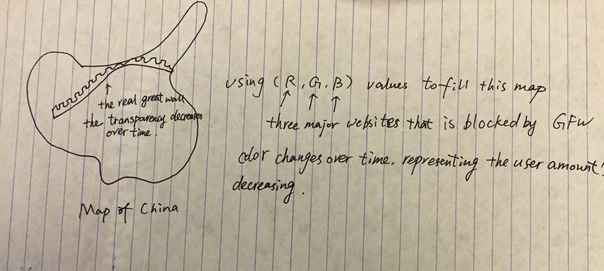 the real great wall
the transparency decreases
over time.
Map of China
using (R, G, B) values to fill this map
three major websites that is blocked by GFW
color changes over time, representing the user amount's
decreasing.